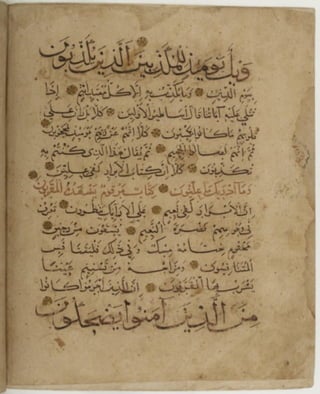 ويل يومئذ للمكذبين الذين يكذبون
بيوم الدين وما يكذب به إلا كل معتد أثيم إذا
تتلى عليه آياتنا قال أساطير الأولين كلا بل ران على
قلوبهم ما كانوا يكسبون كلا إنهم عن ربهم يومئذ لمحجوبون
ثم إنهم لصالوا الجحيم ثم يقال هذا الذي كنتم به
تكذبون كلا إن كتاب الأبرار لفي عليين
وما أدراك ما عليون كتاب مرقوم يشهده المقربون
إن الأبرار لفي نعيم على الأرائك ينظرون تعرف
في وجوههم نضرة النعيم يسقون من رحيق
مختوم ختامه مسك وفي ذلك فليتنافس
المتنافسون ومزاجه من تسنيم عينا
يشرب بها المقربون إن الذين أجرموا كانوا
من الذين آمنوا يضحكون